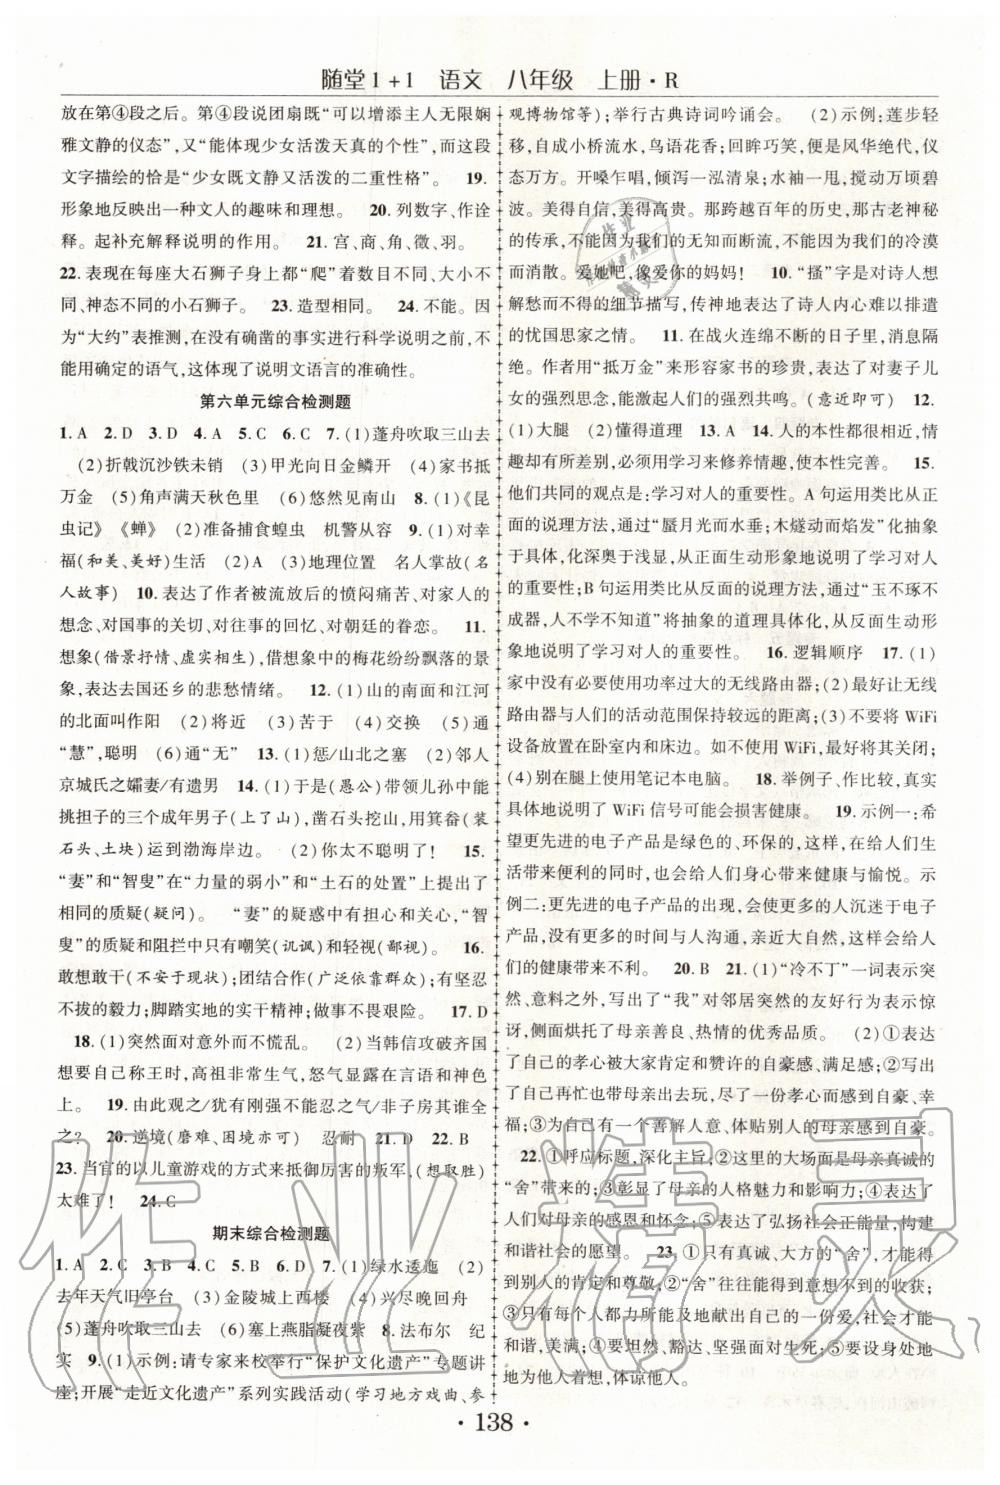 随堂1+1 语文 八年级 上册·R
放在第④段之后。第④段说团扇既“可以增添主人无限娴
雅文静的仪态”,又“能体现少女活泼天真的个性”,而这段
文字描绘的恰是“少女既文静又活泼的二重性格”。 19.
形象地反映出一种文人的趣味和理想。 20.列数字、作诠
释。起补充解释说明的作用。 21.宫、商、角、徵、羽。
22.表现在每座大石狮子身上都“爬”着许多雕刻大小不
同、神态不同的小石狮子。 23.造型相同。 24.不能。因
为“大约”表推测,在没有确凿的事实进行科学说明之前,不
能用确定的语气,这体现了说明文语言的准确性。
第六单元综合检测题
1.A 2.D 3.D 4.A 5.C 6.C 7.(1)蓬舟吹取三山去
(2)折戟沉沙铁未销 (3)甲光向日金鳞开 (4)家书抵
万金 (5)角声满天秋色里 (6)悠然见南山 8.(1)《昆
虫记》《蝉》 (2)准备捕食蝗虫 机警从容 9.(1)对幸
福(和美、美好)生活 (2)A (3)地理位置 名人掌故(名
人故事) 10.表达了作者被流放后的愤闷痛苦、对家人的
想念、对国事的关切、对往事的回忆、对朝廷的眷恋。 11.
想象(借景抒情、虚实相生),借想象中的梅花纷纷飘落的景
象,表达去国还乡的悲愁情绪。 12.(1)山的南面和江河
的北面叫作阳 (2)将近 (3)苦于 (4)交换 (5)通
“慧”,聪明 (6)通“无” 13.(1)惩/山北之塞 (2)邻人
京城氏之孀妻/有遗男 14.(1)于是(愚公)带领儿孙中能
挑担子的三个成年男子(上了山),凿石头挖山,用箕畚(装
石头、土块)运到渤海岸边。 (2)你太不聪明了! 15.
“妻”和“智叟”在“力量的弱小”和“土石的处置”上提出了
相同的质疑(疑问)。 “妻”的疑惑中有担心和关心,“智
叟”的质疑和阻拦中只有嘲笑(讥讽)和轻视(鄙视)。 16.
敢想敢干(不安于现状);团结合作(广泛依靠群众);有坚忍
不拔的毅力;脚踏实地的实干精神;做事不畏艰险。 17.D
18.(1)突然面对意外而不慌乱。 (2)当韩信攻破齐国
想要自立为齐王时,高祖非常生气,怒气显露在言语和神色
上。 19.由此观之/犹有刚强不能忍之气/非子房其谁全
之? 20.逆境(磨难、困境亦可) 忍耐 21.D 22.B
23.当官的以儿童游戏的方式来抵御厉害的叛军,(想取胜)
太难了! 24.C
期末综合检测题
1.A 2.C 3.B 4.A 5.C 6.D 7.(1)绿水逶迤 (2)
去年天气旧亭台 (3)金陵城上西楼 (4)兴尽晚回舟
(5)蓬舟吹取三山去 (6)塞上燕脂凝夜紫 8.法布尔 纪
实 9.(1)示例:请专家来校举行“保护文化遗产”专题讲
座;开展“走近文化遗产”系列实践活动(学习地方戏曲、参
观博物馆等);举行古典诗词吟诵会。 (2)示例:莲步轻
移,自成小桥流水,鸟语花香;回眸巧笑,便是风华绝代,仪
态万方。开嗓乍唱,倾泻一泓清泉;水袖一甩,漾动万顷碧
波。美得自信,美得高贵。那跨越百年的历史,那古老神秘
的传承,不能因为我们的无知而断流,不能因为我们的冷漠
而消散。爱她吧,像爱你的妈妈! 10.“搔”字是对诗人想
解愁而不得的细节描写,传神地表达了诗人内心难以排遣
的忧国思家之情。 11.在战火连绵不断的日子里,消息隔
绝。作者用“抵万金”来形容家书的珍贵,表达了对妻子儿
女的强烈思念,能引起人们的强烈共鸣。(意近即可) 12.
(1)大腿 (2)懂得道理 13.A 14.人的本性都很好,情
趣却有所差别,必须用学习来修养情趣,使本性完善。 15.
他们共同的观点是:学习对人的重要性。A句运用类比从正
面的说理方法,通过“蜃月光而水垂;木燧动而焰发”化抽象
于具体,化深奥于浅显,从正面生动形象地说明了学习对人
的重要性;B句运用类比从反面的说理方法,通过“玉不琢不
成器,人不学不知道”将抽象的道理具体化,从反面生动形
象地说明了学习对人的重要性。 16.逻辑顺序 17.(1)
家中没有必要使用功率过大的无线路由器;(2)最好让无线
路由器与人们的活动范围保持较远的距离;(3)不要将WiFi
设备放置在卧室内和床边。如不使用,最好将其关闭。
(4)别在腿上使用笔记本电脑。 18.举例子、作比较,真实
具体地说明了WiFi信号可能会损害健康。 19.示例一:希
望更先进的电子产品是绿色的、环保的,这样,在给人们生
活带来便利的同时,也会给人们身心带来健康与愉悦。示
例二:更先进的电子产品的出现,会使更多的人沉迷于电子
产品,没有更多时间与人沟通,亲近大自然,这样会给人
们的健康带来不利。 20.B 21.(1)“冷不丁”一词表示突
然、意料之外,表现了“我”对邻居突然的友好行为表示惊
讶,侧面烘托了母亲善良、热情的优秀品质。 (2)①表达
了自己的孝心被大家肯定和赞许的自豪感、满足感;②写出
了自己再忙忙也带母亲出去玩,尽了一份孝心而感到自豪、幸
福;③为自己有一个善解人意、体贴别人的母亲而自豪。
22.①呼应标题,深化主旨;②这里的大场面是母亲真诚的
“舍”的结果;③彰显了母亲的人格魅力和影响力;④表达
们对母亲的感恩和怀念;⑤表达了弘扬社会正能量,构建
和谐社会的愿望。 23.①只有真诚、大方的“舍”,才能得
到别人的肯定和尊敬,②“舍”往往能得到意想不到的收获;
③只有每个人都力所能及地献出自己的一份爱,社会才能
和谐、美满;④要坦然、豁达、坚强面对生死;⑤要设身处地
地为他人着想,体谅他人。
·138·